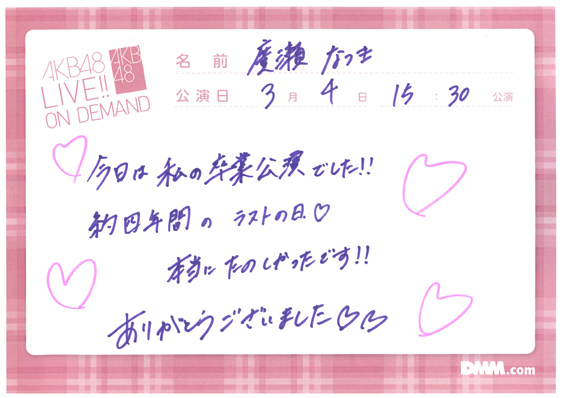 AKB48
LIVE!!
ON DEMAND
AKB
48
名前 廣瀬 なつき
公演日 3月4日 15:30公演
今日は私の卒業公演でした!!
約四年間の ラストの日♡
本当に たのしかったです!!
ありがとうございました♡♡
DMM.com